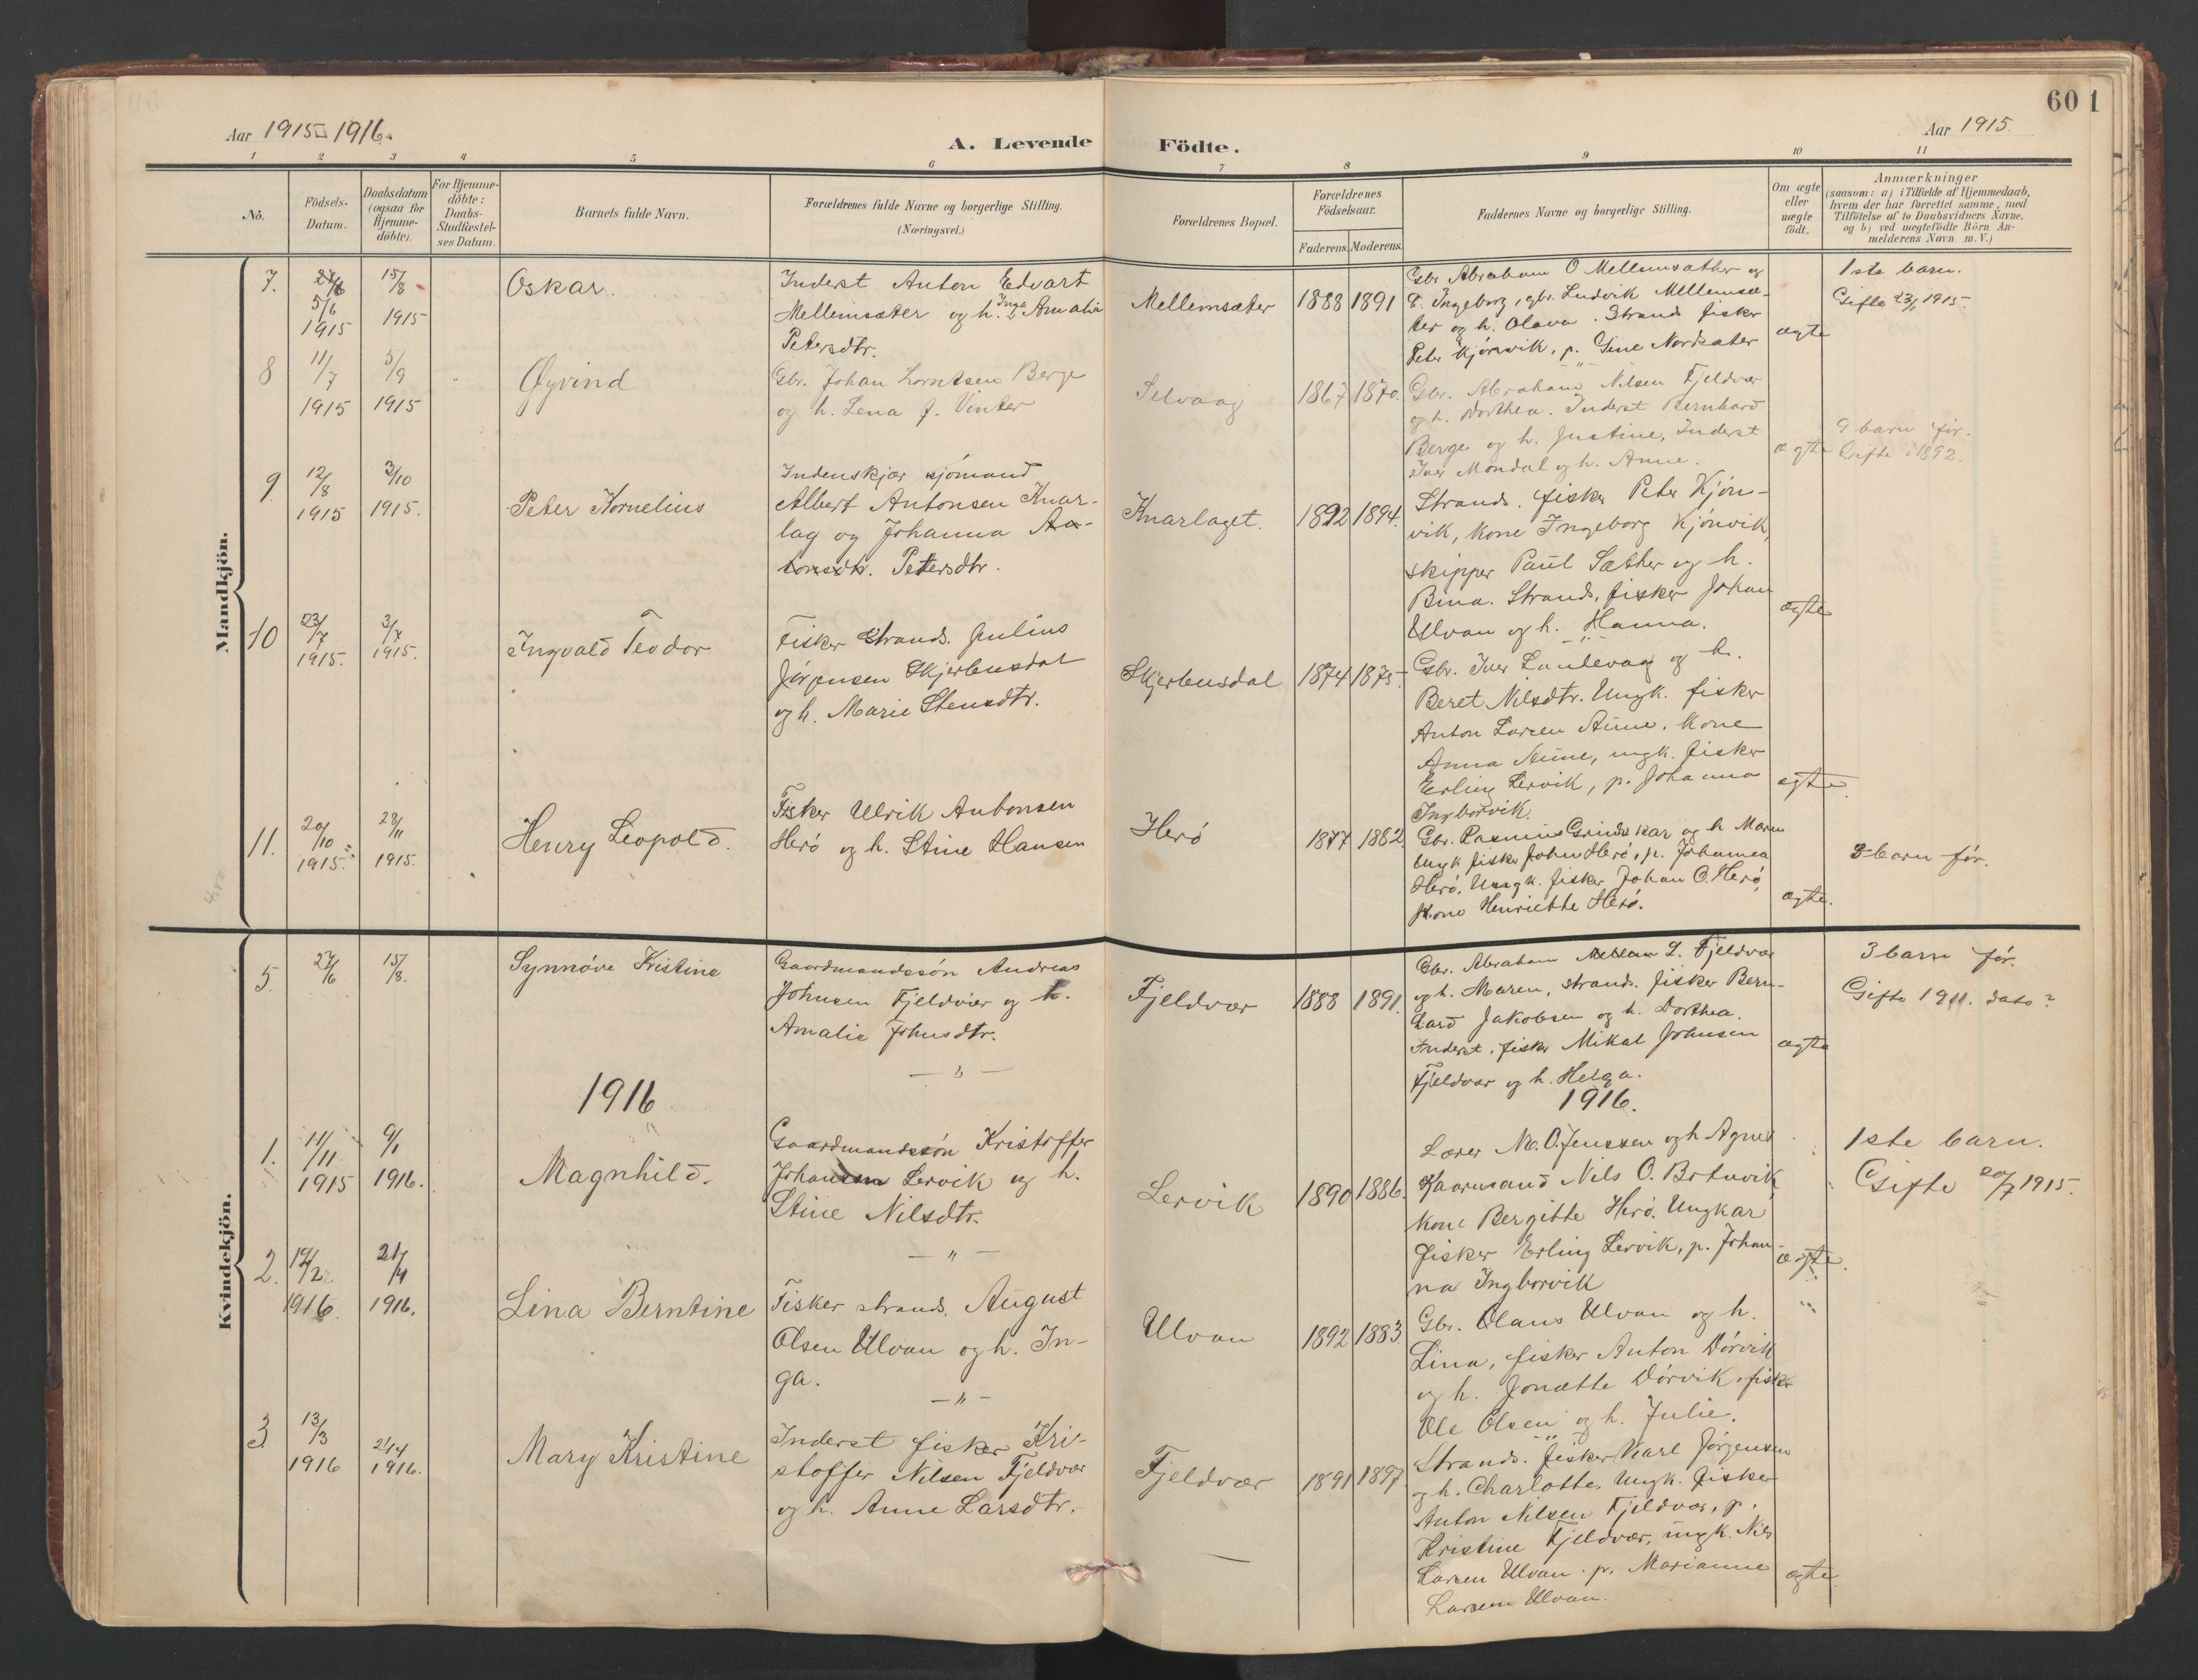 601
Aar 1915 1916.
A. Levende Födte.
Aar 1915.
1 2 3 4 5 6 7 8 9 10 11
No. Födsels-Datum. Daabsdatum (ogsaa for Hjemme-döbte). For Hjemme-döbte: Daabs-Stadfæstel-ses Datum. Barnets fulde Navn. Forældrenes fulde Navne og borgerlige Stilling. (Næringsvei.) Forældrenes Bopæl. Forældrenes Födselsaar. Faderens. Moderens. Faddernes Navne og borgerlige Stilling. Om ægte eller uægte födt. Anmærkninger
(saasom: a) i Tilfælde af Hjemmedaab,
hvem der har forrettet samme, med
Tilföielse af to Daabsvidners Navne,
og b) ved uægtefödte Börn An-
melderens Navn m. V.)
Mandkjön.
7. 27/6 5/6 1915 15/8 1915 Oskar.
Inderst Anton Edvart
Mellemsæter og h. Inga Amalia
Petersdtr.
Mellemsæter 1888 1891
Gbr Abraham O Mellemsæther og
h. Ingeborg, gbr. Ludvik Mellemsæ-
ter og h. Olava. Strands. fisker
Peter Kjönsvik, p. Gine Nordsæter
ægte
1ste barn.
Gifte 23/1 1915.
8 11/7 1915 5/9 1915 Øyvind
Gbr. Johan Lorntsen Berge
og h. Lena J. Vinter
Selvaag 1867 1870.
Gbr. Abraham Nilsen Fjeldvær
og h. Dorthea. Inderst Bernhard
Berge og h. Justine, Inderst
Iver Mondal og h. Anne.
ægte
9 barn før.
Gifte i 1892.
9. 12/8 1915 3/10 1915. Peter Kornelius
Indenskjær sjömand
Albert Antonsen Knar-
lag og Johanna An-
tonsdtr. Petersdtr.
Knarlaget. 1892 1894.
Strands. fisker Peter Kjön-
vik, kone Ingeborg Kjönvik,
skipper Paul Sæther og h.
Bina. Strands, fisker Johan
Ulvan og h. Hanna.
ægte
10 23/7 1915. 3/7 1915. Ingvald Teodor
Fisker Strands. Julius
Jörgensen Skjerbusdal
og h. Marie Stensdtr.
Skjerbusdal 1874 1875
Gbr. Iver Laulevag og h.
Beret Nilsdtr. Ungk. fisker
Anton Larsen Aune. Kone
Anna Aune, ungk. fisker
Erling Lervik, p. Johanna
Ingborvik.
ægte.
11. 20/10 1915. 28/11 1915. Henry Leopold.
Fisker Ulrik Antonsen
Herö og h. Stine Hansen
Herö 1877 1882
Gbr. Rasmus Grindskar og h Maren
Ungk fisker John Herö, p. Johanna
Herö. Ungk. fisker Johan O. Herö,
Kone Henriette Herö.
ægte.
3 barn för.
Kvindekjön.
5. 27/6 15/8. Synnöve Kristine
Gaardmandssön Andreas
Johnsen Fjeldvær og h.
Amalie Johnsdtr.
Fjeldvær 1888 1891.
Gbr. Abraham L. Fjeldvær
og h. Maren, strands. fisker Bern-
hard Jakobsen og h. Dorthea.
Inderst, fisker Mikal Johnsen
Fjeldvær og h. Helga.
ægte
3 barn för.
Gifte 1911. dato?
— " —
1916.
1916.
1. 11/11 1915 9/1 1916. Magnhild.
Gaardmandssön Kristoffer
Johansen Lervik og h.
Stine Nilsdtr.
Lervik 1890 1886.
Lærer M. O. Jenssen og h Agnes
Kaarmand Nils O. Botnvik
kone Bergitte Herö. Ungkar
fisker Erling Lervik, p. Johan-
na Ingborvik
ægte.
1ste barn.
Gifte 20/7 1915.
— " —
2. 19/2 1916. 21/4 1916. Lina Berntine
Fisker strands. August
Olsen Ulvan og h. In-
ga.
Ulvan 1892 1883
Gbr. Olaus Ulvan og h.
Lina, fisker Anton Dörvik
og h. Jonette Dörvik, fisker
Ole Olsen og h. Julie.
— " —
3 13/3 1916 21/4 1916. Mary Kristine
Inderst fisker Kri-
stoffer Nilsen Fjeldvær
og h. Anne Larsdtr.
Fjeldvær 1891 1897
Strands. fisker Karl Jörgensen
og h. Charlotte. Ungk. fisker
Anton Nilsen Fjeldvær, p.
Kristine Fjeldvær, ungk. Nils
Larsen Ulvan. p. Marianne
Larsen Ulvan.
ægte